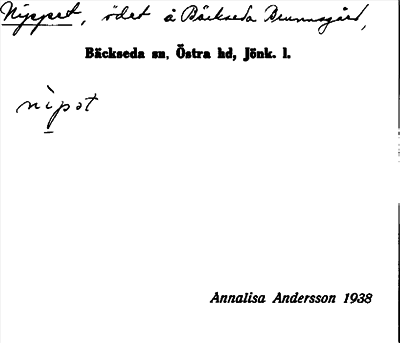 Nyppet, ödet å Bäckseda Brunnsgård,
Bäckseda sn, Östra hd, Jönk. l.
nìpot
Annalisa Andersson 1938